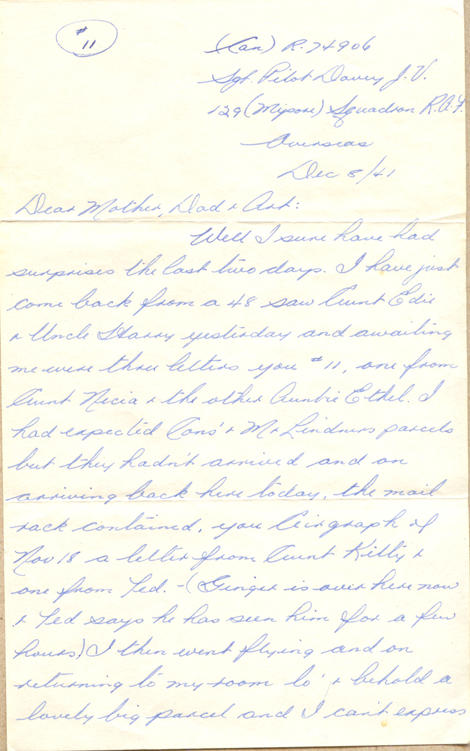 #11
(Can) R.74906
Sgt. Pilot Davey J.V.
129 (Mysore) Squadron R.A.F.
Overseas
Dec 8/41
Dear Mother, Dad & Art:
Well I sure have had
surprises the last two days. I have just
come back from a 48 saw Aunt Edie
& Uncle Harry yesterday and awaiting
me were three letters you #11, one from
Aunt Necia & the other Auntie Ethel. I
had expected Cons' & Mr Lindners parcels
but they hadn't arrived and on
arriving back here today, the mail
rack contained, you Airgraph of
Nov 18 a letter from Aunt Kitty &
one from Ted. - (Ginger is over here now
& Ted says he has seen him for a few
hours) I then went flying and on
returning to my room lo' & behold a
lovely big parcel and I can't express